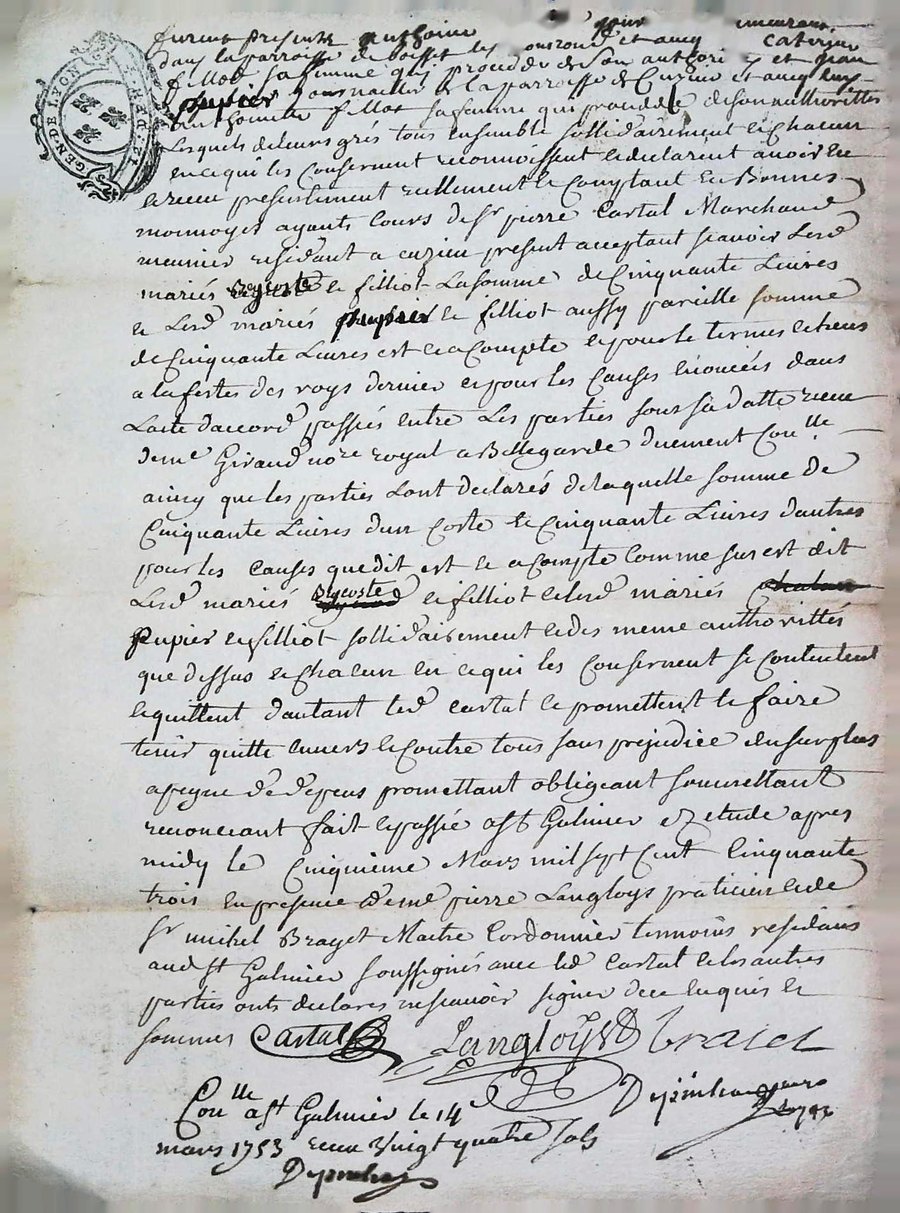 GEN. DE LYON
furent presents anthoine
dans la parroisse de boisset les et aucy caterine
fillot sa femme qui procedde de son authori et jean
pupier journallier de la parroisse de Cuzieu et aucy
anthoinette fillot sa femme qui procedde de son authoritté
Lesquels de leurs grés tous ensemble sollidairement et Chacun
en ce qui les Consernent reconnoissent et declarent avoir eu
et receu presentement reellement et Comptant en Bonnes
monnoyes ayants Cours de Sr pierre Cartal Marchand
meunier residant a cuzieu present acceptant scavoir Lesd
mariés et filliot La somme de Cinquante Livres
et Lesd mariés pupier et filliot aussy pareille somme
de Cinquante Livres et ce a Compte et pour le termes echeus
a la feste des roys dernier et pour les Causes enoncées dans
Lacte daccord passés entre Les parties sous sa datte receu
de me Giraud nore royal a Bellegarde duement Conlle
aincy que les parties Lont declarés de laquelle somme de
Cinquante Livres dun Costé et Cinquante Livres dautres
pour les Causes que dit est et a Compte Comme sus est dit
Lesd mariés et filliot et lesd mariés
Pupier et filliot sollidairement et des meme authorittés
que dessus et Chacun en ce qui les Consernent se Contentent
et quittent dautant led Cartal et promettent le faire
tenir quitte envers et Contre tous sans prejudice du surplus
a peyne de depens promettant obligeant soumettant
renonceant fait et passé a St Galmier ez etude apres
midy le Cinquieme Mars mil sept Cent Cinquante
trois en presence de me pierre Langloys praticien et de
Sr michel Brayet Maitre Cordonnier temoins residans
aud St Galmier soussignés avec led Cartal et les autres
parties onts declarés ne scavoir signer de ce enquis et
sommés Cartal Langloys braiet
Conlle a St Galmier le 14
mars 1753 receu Vingt quatre sols